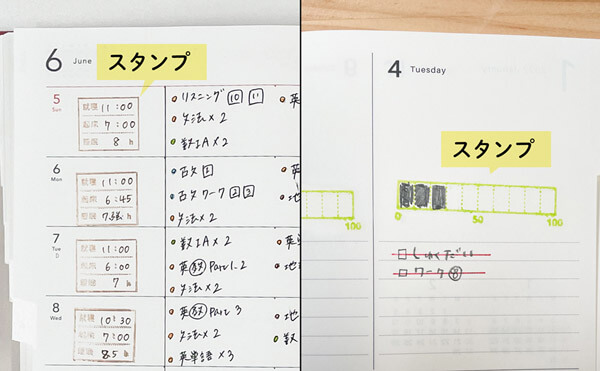 6 June
スタンプ
5 Sun
就寝 11:00
起床 7:00
睡眠 8 h
リスニング 10 11
文法×2
数IA×2
英
6 Mon
就寝 11:00
起床 6:45
睡眠 h
古文 1
古文ワーク 2 2
文法×2
英
地
7 Tue
就寝 11:00
起床 6:00
睡眠 7 h
数IA×2
英 Part 1.2
文法×2
英
地
8 Wed
就寝 10:30
起床 7:00
睡眠 8.5 h
英 Part 3
文法×2
英単語×3
地
数
4 Tuesday
スタンプ
100
0 50 100
しゅくだい
ワーク⑧